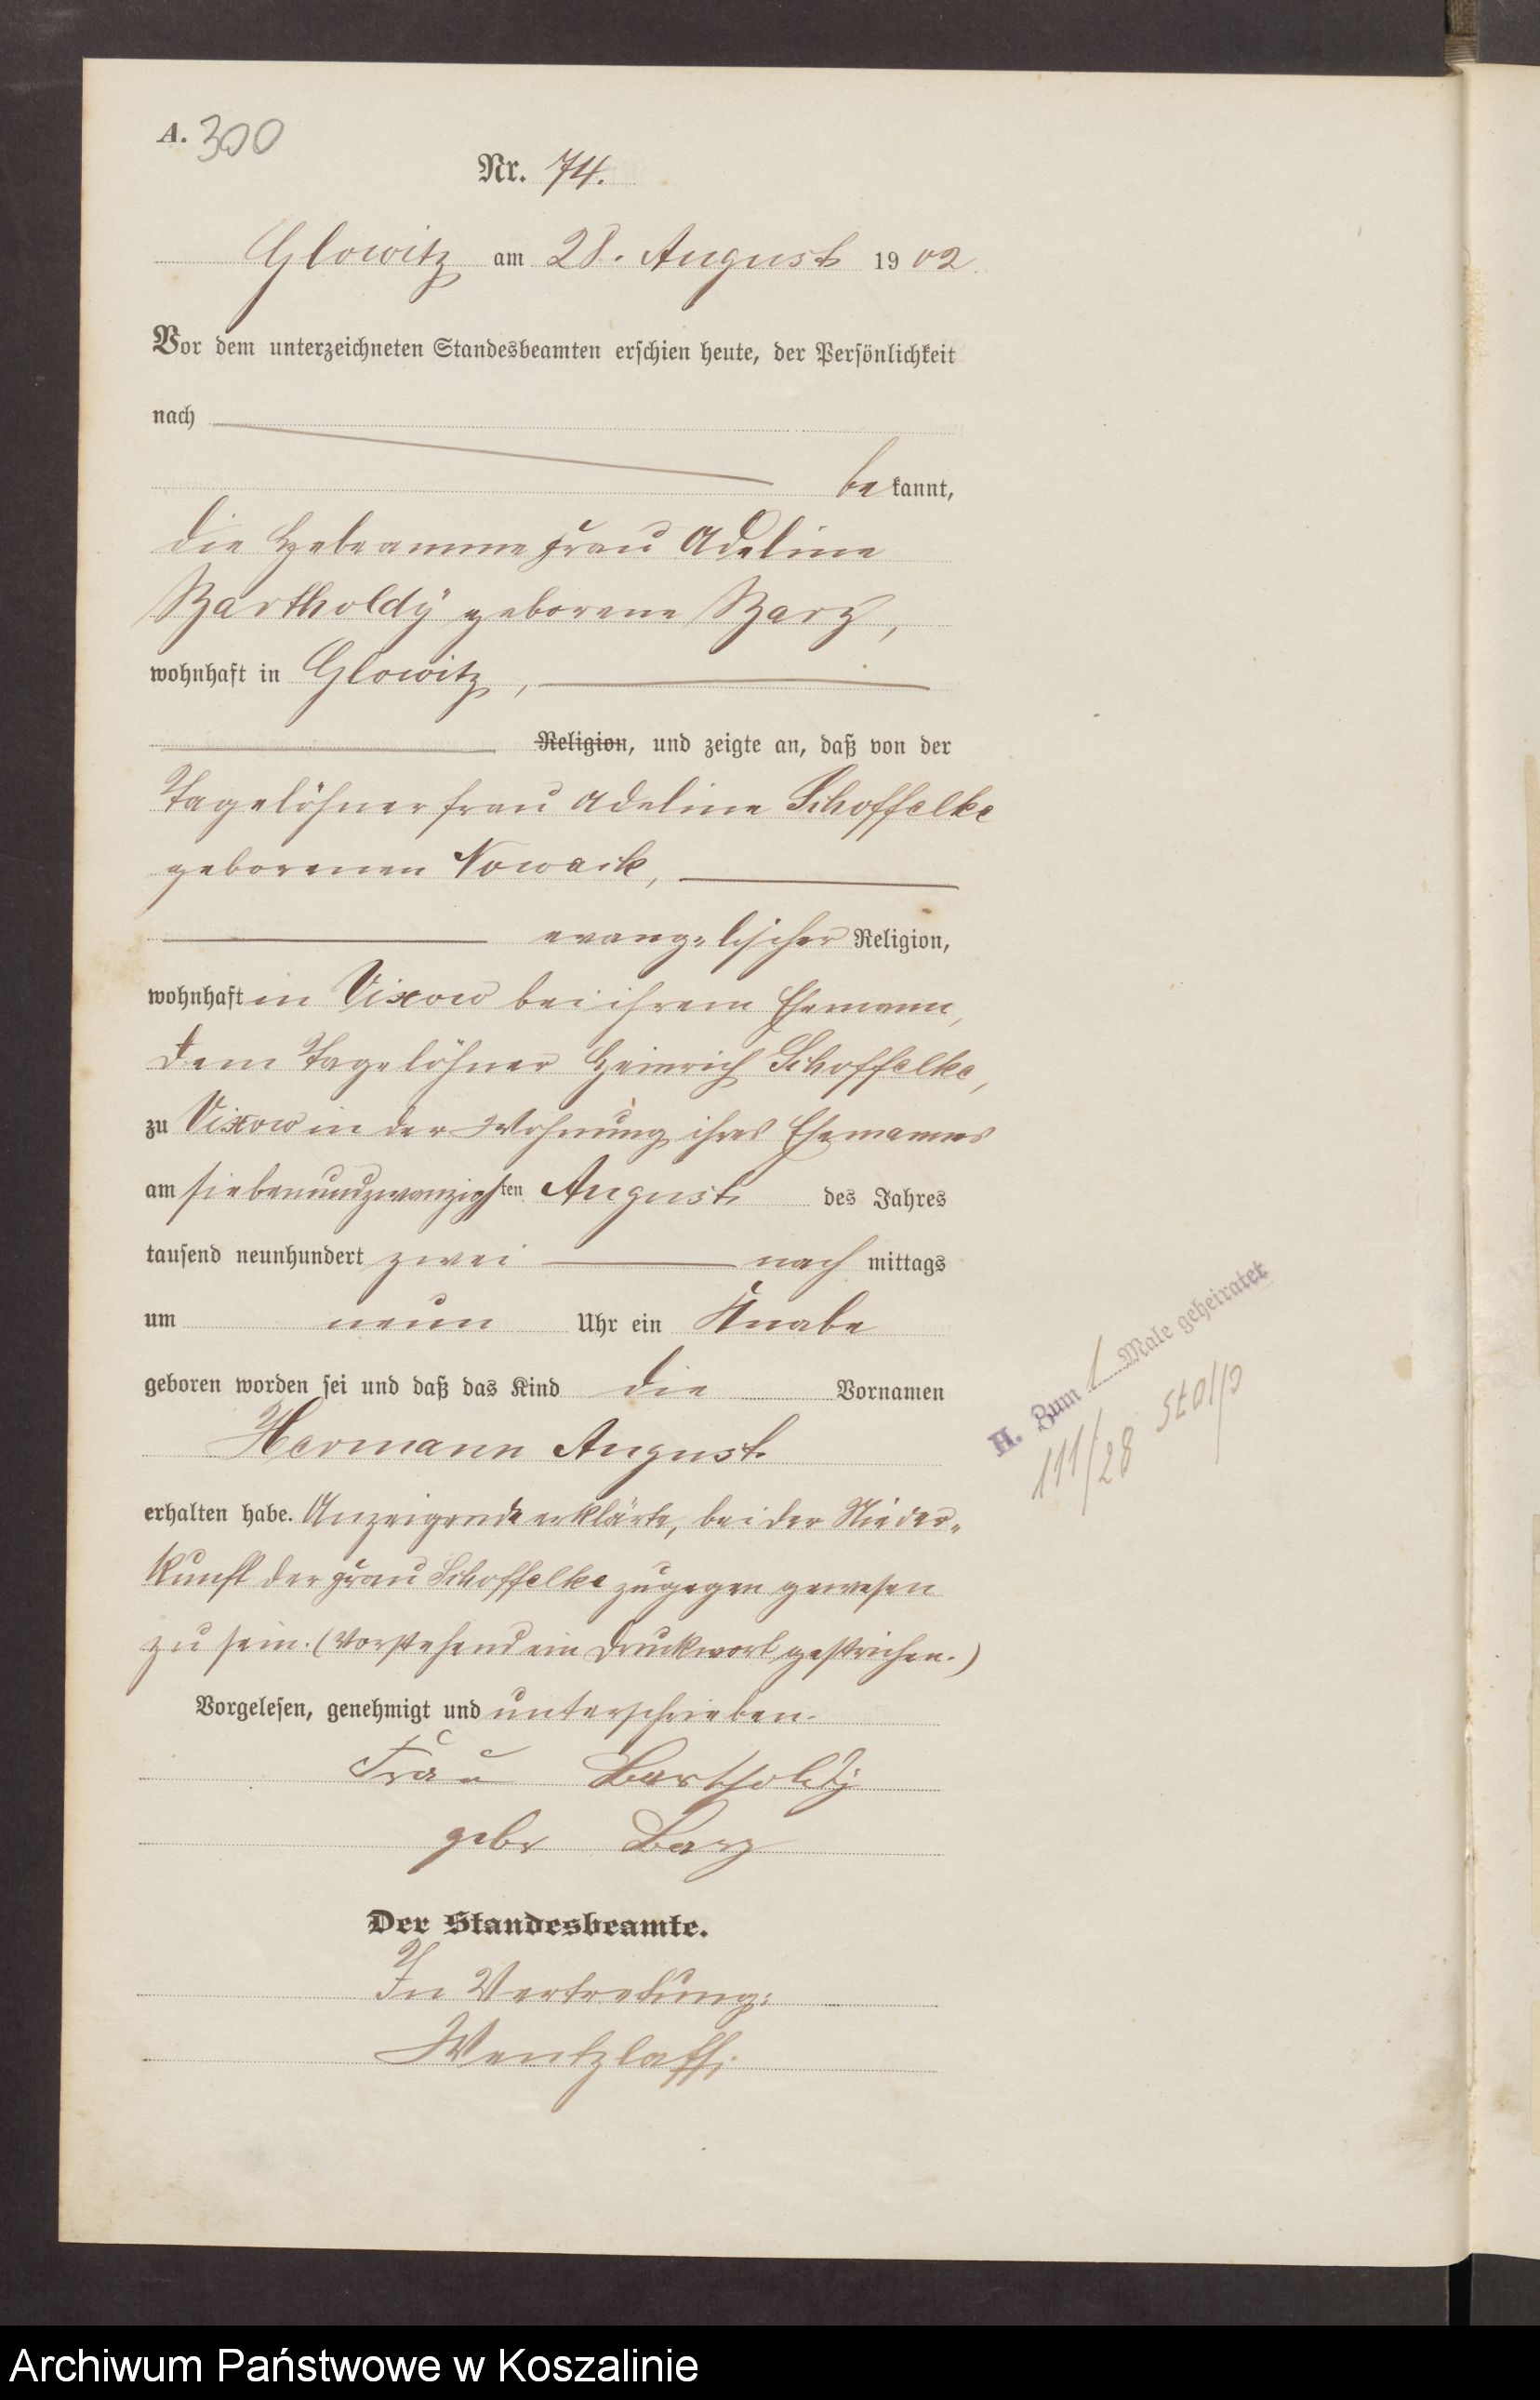 A. 300
Nr. 74.
Glowitz am 28. August 1902.
Vor dem unterzeichneten Standesbeamten erschien heute, der Persönlichkeit
nach
bekannt,
die Hebeamme Frau Adeline
Bartholdÿ geborene Barz,
wohnhaft in Glowitz,
Religion, und zeigte an, daß von der
Tagelöhnerfrau Adeline Schoffelke
geborenen Nowack,
evangelischer Religion,
wohnhaft in Vixow bei ihrem Ehemann,
dem Tagelöhner Heinrich Schoffelke,
zu Vixow in der Wohnung ihres Ehemannes
am siebenundzwanzigsten August des Jahres
tausend neunhundert zwei nach mittags
um neun Uhr ein Knabe
geboren worden sei und daß das Kind die Vornamen
Hermann August
erhalten habe. Anzeigende erklärte, bei der Nieder-
kunft der Frau Schoffelke zugegen gewesen
zu sein. (Vorstehend ein Druckwort gestrichen.)
Vorgelesen, genehmigt und unterschrieben.
Frau Bartholdy
gebr Barz
Der Standesbeamte.
In Vertretung:
Wentzlaff.
H. Zum 1 Male geheiratet
111/28 Stolp
Archiwum Państwowe w Koszalinie